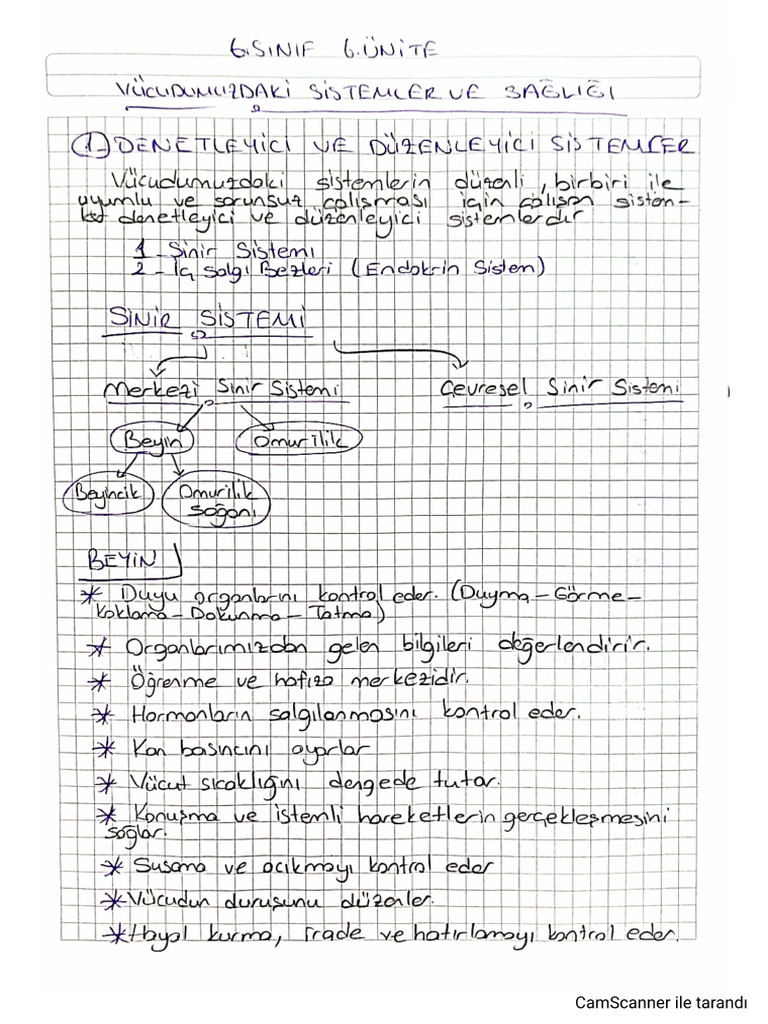 6.SINIF 6.ÜNİTE
VÜCUDUMUZDAKİ SİSTEMLER VE SAĞLIĞI
1 DENETLEYİCİ VE DÜZENLEYİCİ SİSTEMLER
Vücudumuzdaki sistemlerin düzenli, birbiri ile
uyumlu ve sorunsuz çalışması için çalışan sistem-
denetleyici ve düzenleyici sistemlerdir
1 - Sinir Sistemi
2 - İç Salgı Bezleri (Endokrin Sistem)
SİNİR SİSTEMİ
Merkezi Sinir Sistemi Çevresel Sinir Sistemi
Beyin Omurilik
Beyincik Omurilik
soğanı
BEYİN
* Duyu organlarını kontrol eder. (Duyma - Görme -
Koklama - Dokunma - Tatma)
* Organlarımızdan gelen bilgileri değerlendirir.
* Öğrenme ve hafıza merkezidir.
* Hormonların salgılanmasını kontrol eder.
* Kan basıncını ayarlar
* Vücut sıcaklığını dengede tutar.
* Konuşma ve istemli hareketlerin gerçekleşmesini
sağlar.
* Susama ve acıkmayı kontrol eder
* Vücudun duruşunu düzenler.
* Hayal kurma, İrade ve hatırlamayı kontrol eder.
CamScanner ile tarandı